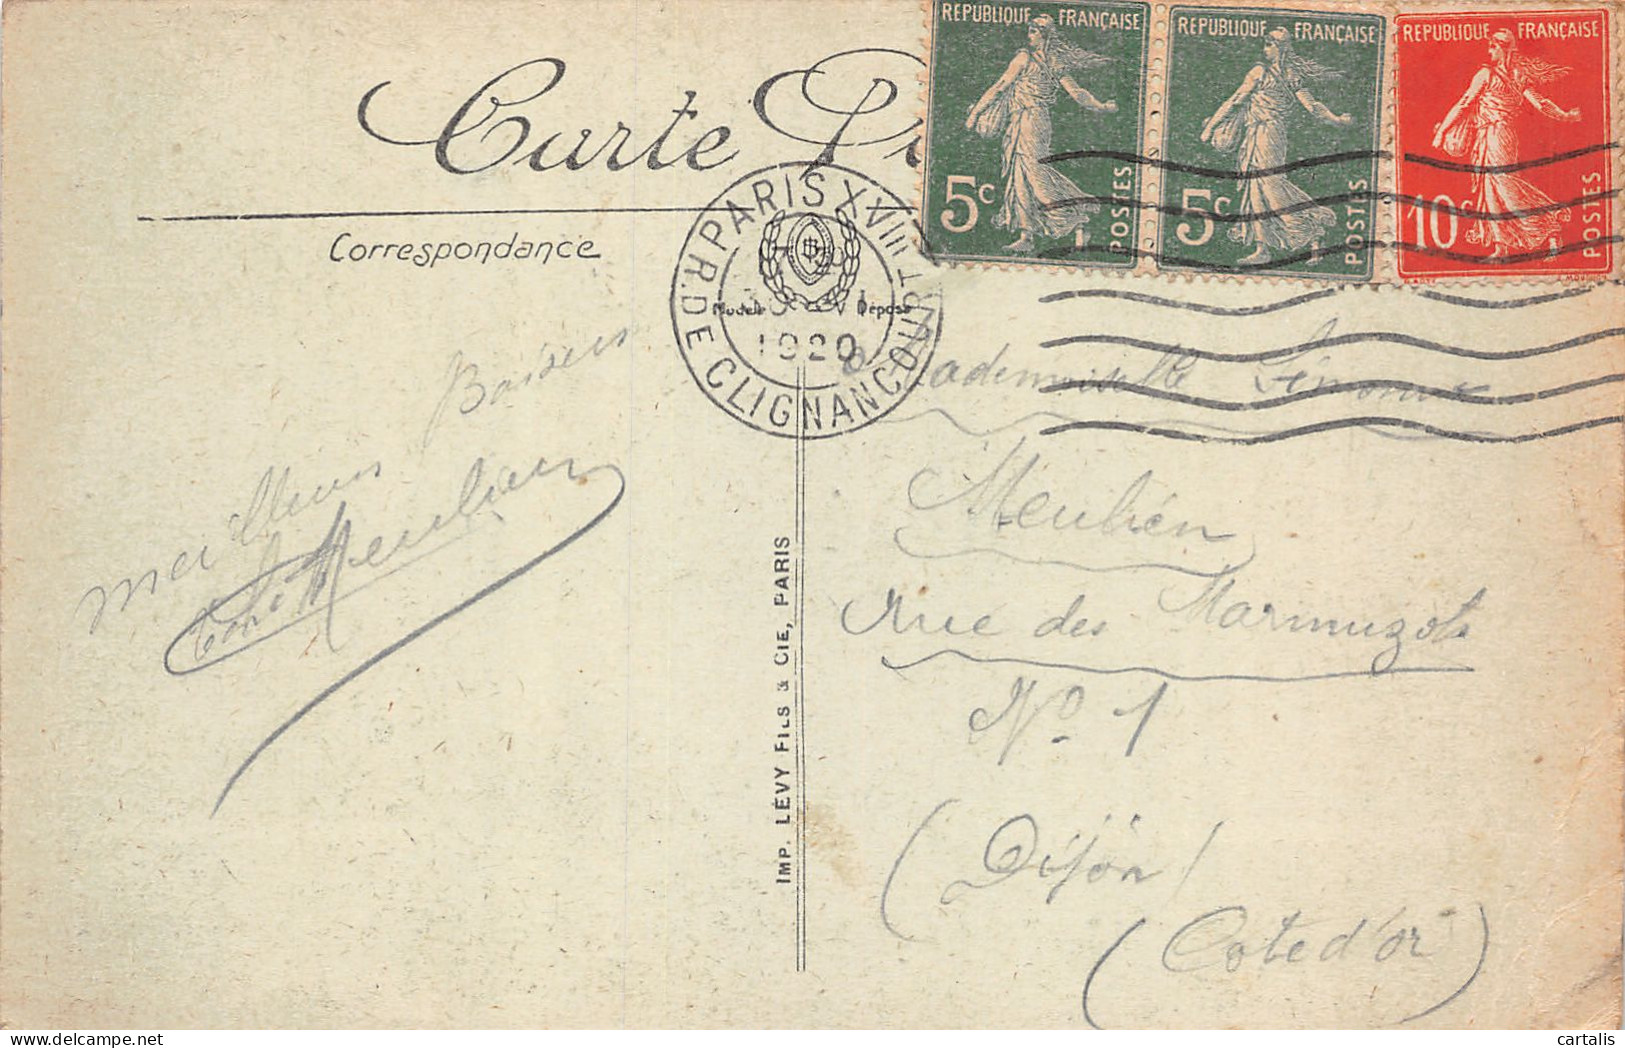 REPUBLIQUE FRANÇAISE
5c
POSTES
REPUBLIQUE FRANÇAISE
5c
POSTES
REPUBLIQUE FRANÇAISE
10c
POSTES
Carte
PARIS XVIII
R. DE CLIGNANCOURT
1920
Correspondance
Modèle Déposé
meilleurs Baisers
Meulien
IMP. LÉVY FILS & CIE, PARIS
Mademoiselle Simone
Meulien
Rue des Marmuzots
No 1
(Dijon)
(Cote d'or)
cartalis